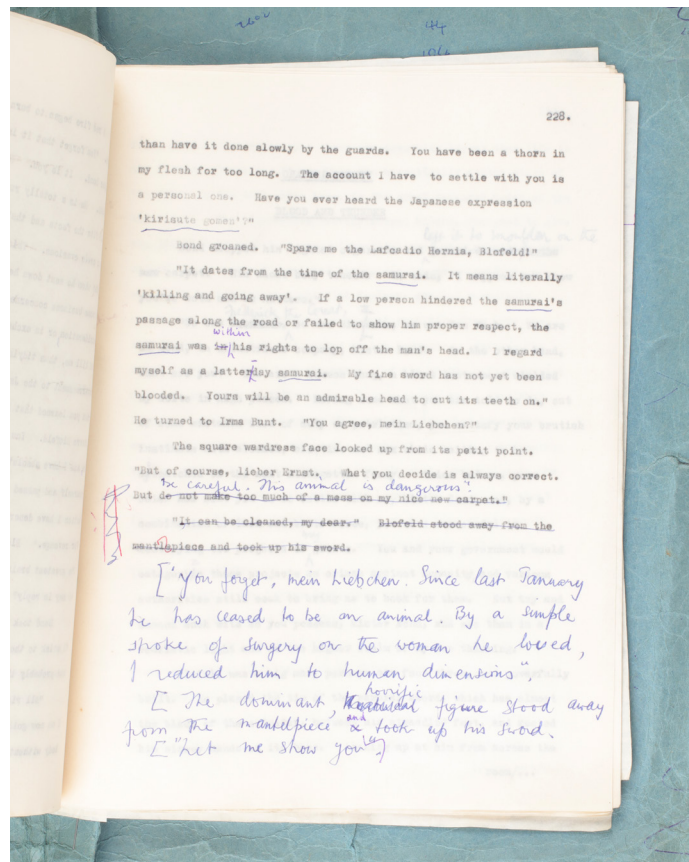 228.
than have it done slowly by the guards. You have been a thorn in
my flesh for too long. The account I have to settle with you is
a personal one. Have you ever heard the Japanese expression
'kirisute gomen'?"
Bond groaned. "Spare me the Lafcadio Hernia, Blofeld!"
"It dates from the time of the samurai. It means literally
'killing and going away'. If a low person hindered the samurai's
passage along the road or failed to show him proper respect, the
within
samurai was in his rights to lop off the man's head. I regard
myself as a latter-day samurai. My fine sword has not yet been
blooded. Yours will be an admirable head to cut its teeth on."
He turned to Irma Bunt. "You agree, mein Liebchen?"
The square wardress face looked up from its petit point.
"But of course, lieber Ernst. What you decide is always correct.
be careful. This animal is dangerous".
But do not make too much of a mess on my nice new carpet."
"It can be cleaned, my dear." Blofeld stood away from the
mantlepiece and took up his sword.
["You forget, mein Liebchen. Since last January
he has ceased to be an animal. By a simple
stroke of surgery on the woman he loved,
I reduced him to human dimensions".
horrific
[ The dominant, figure stood away
and
from the mantelpiece & took up his sword.
["Let me show you"